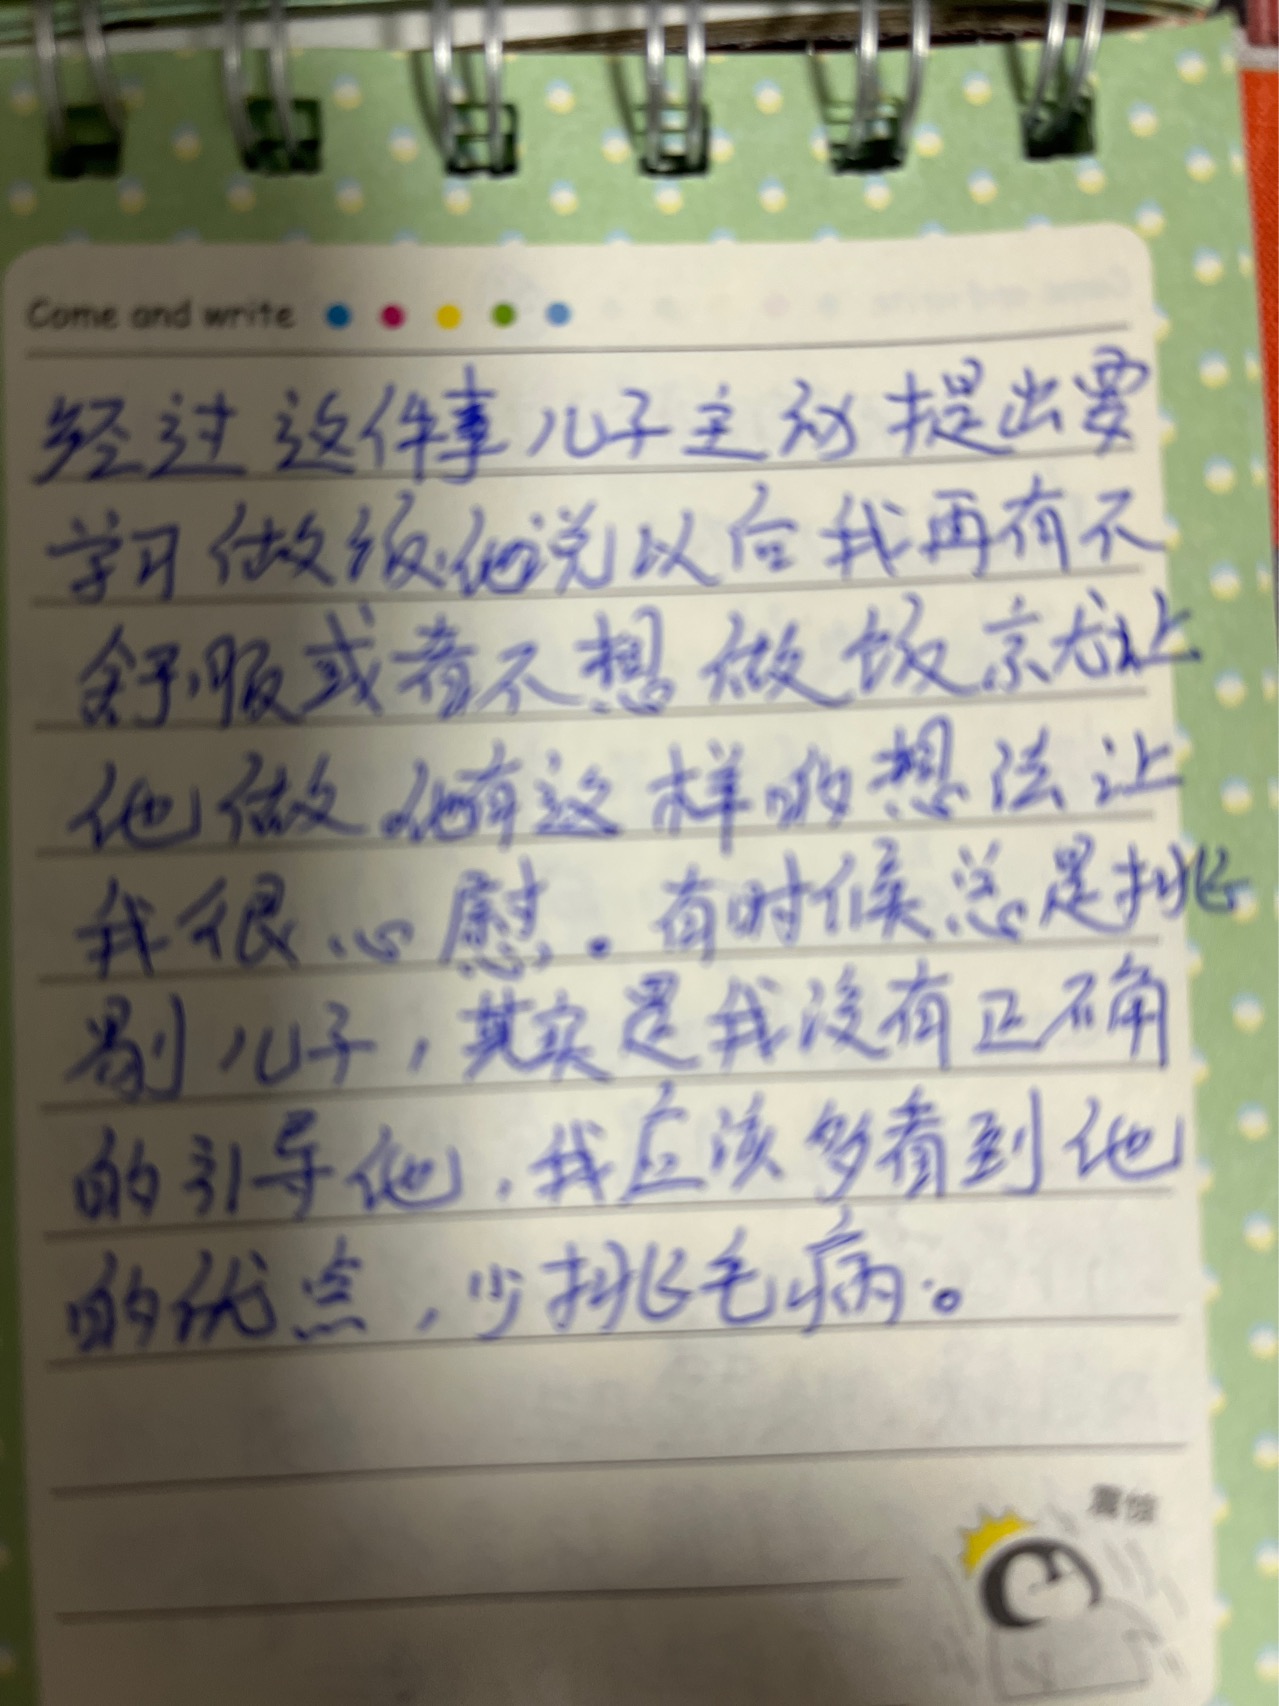 Come and write
经过这件事儿子主动提出要
学习做饭.他说以后我再有不
舒服或者不想做饭就让
他做.他有这样的想法让
我很心慰。有时候总是挑
剔儿子,其实是我没有正确
的引导他,我应该多看到他
的优点,少挑毛病。
震惊